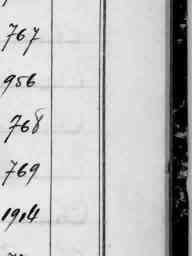 767
956
768
769
1914